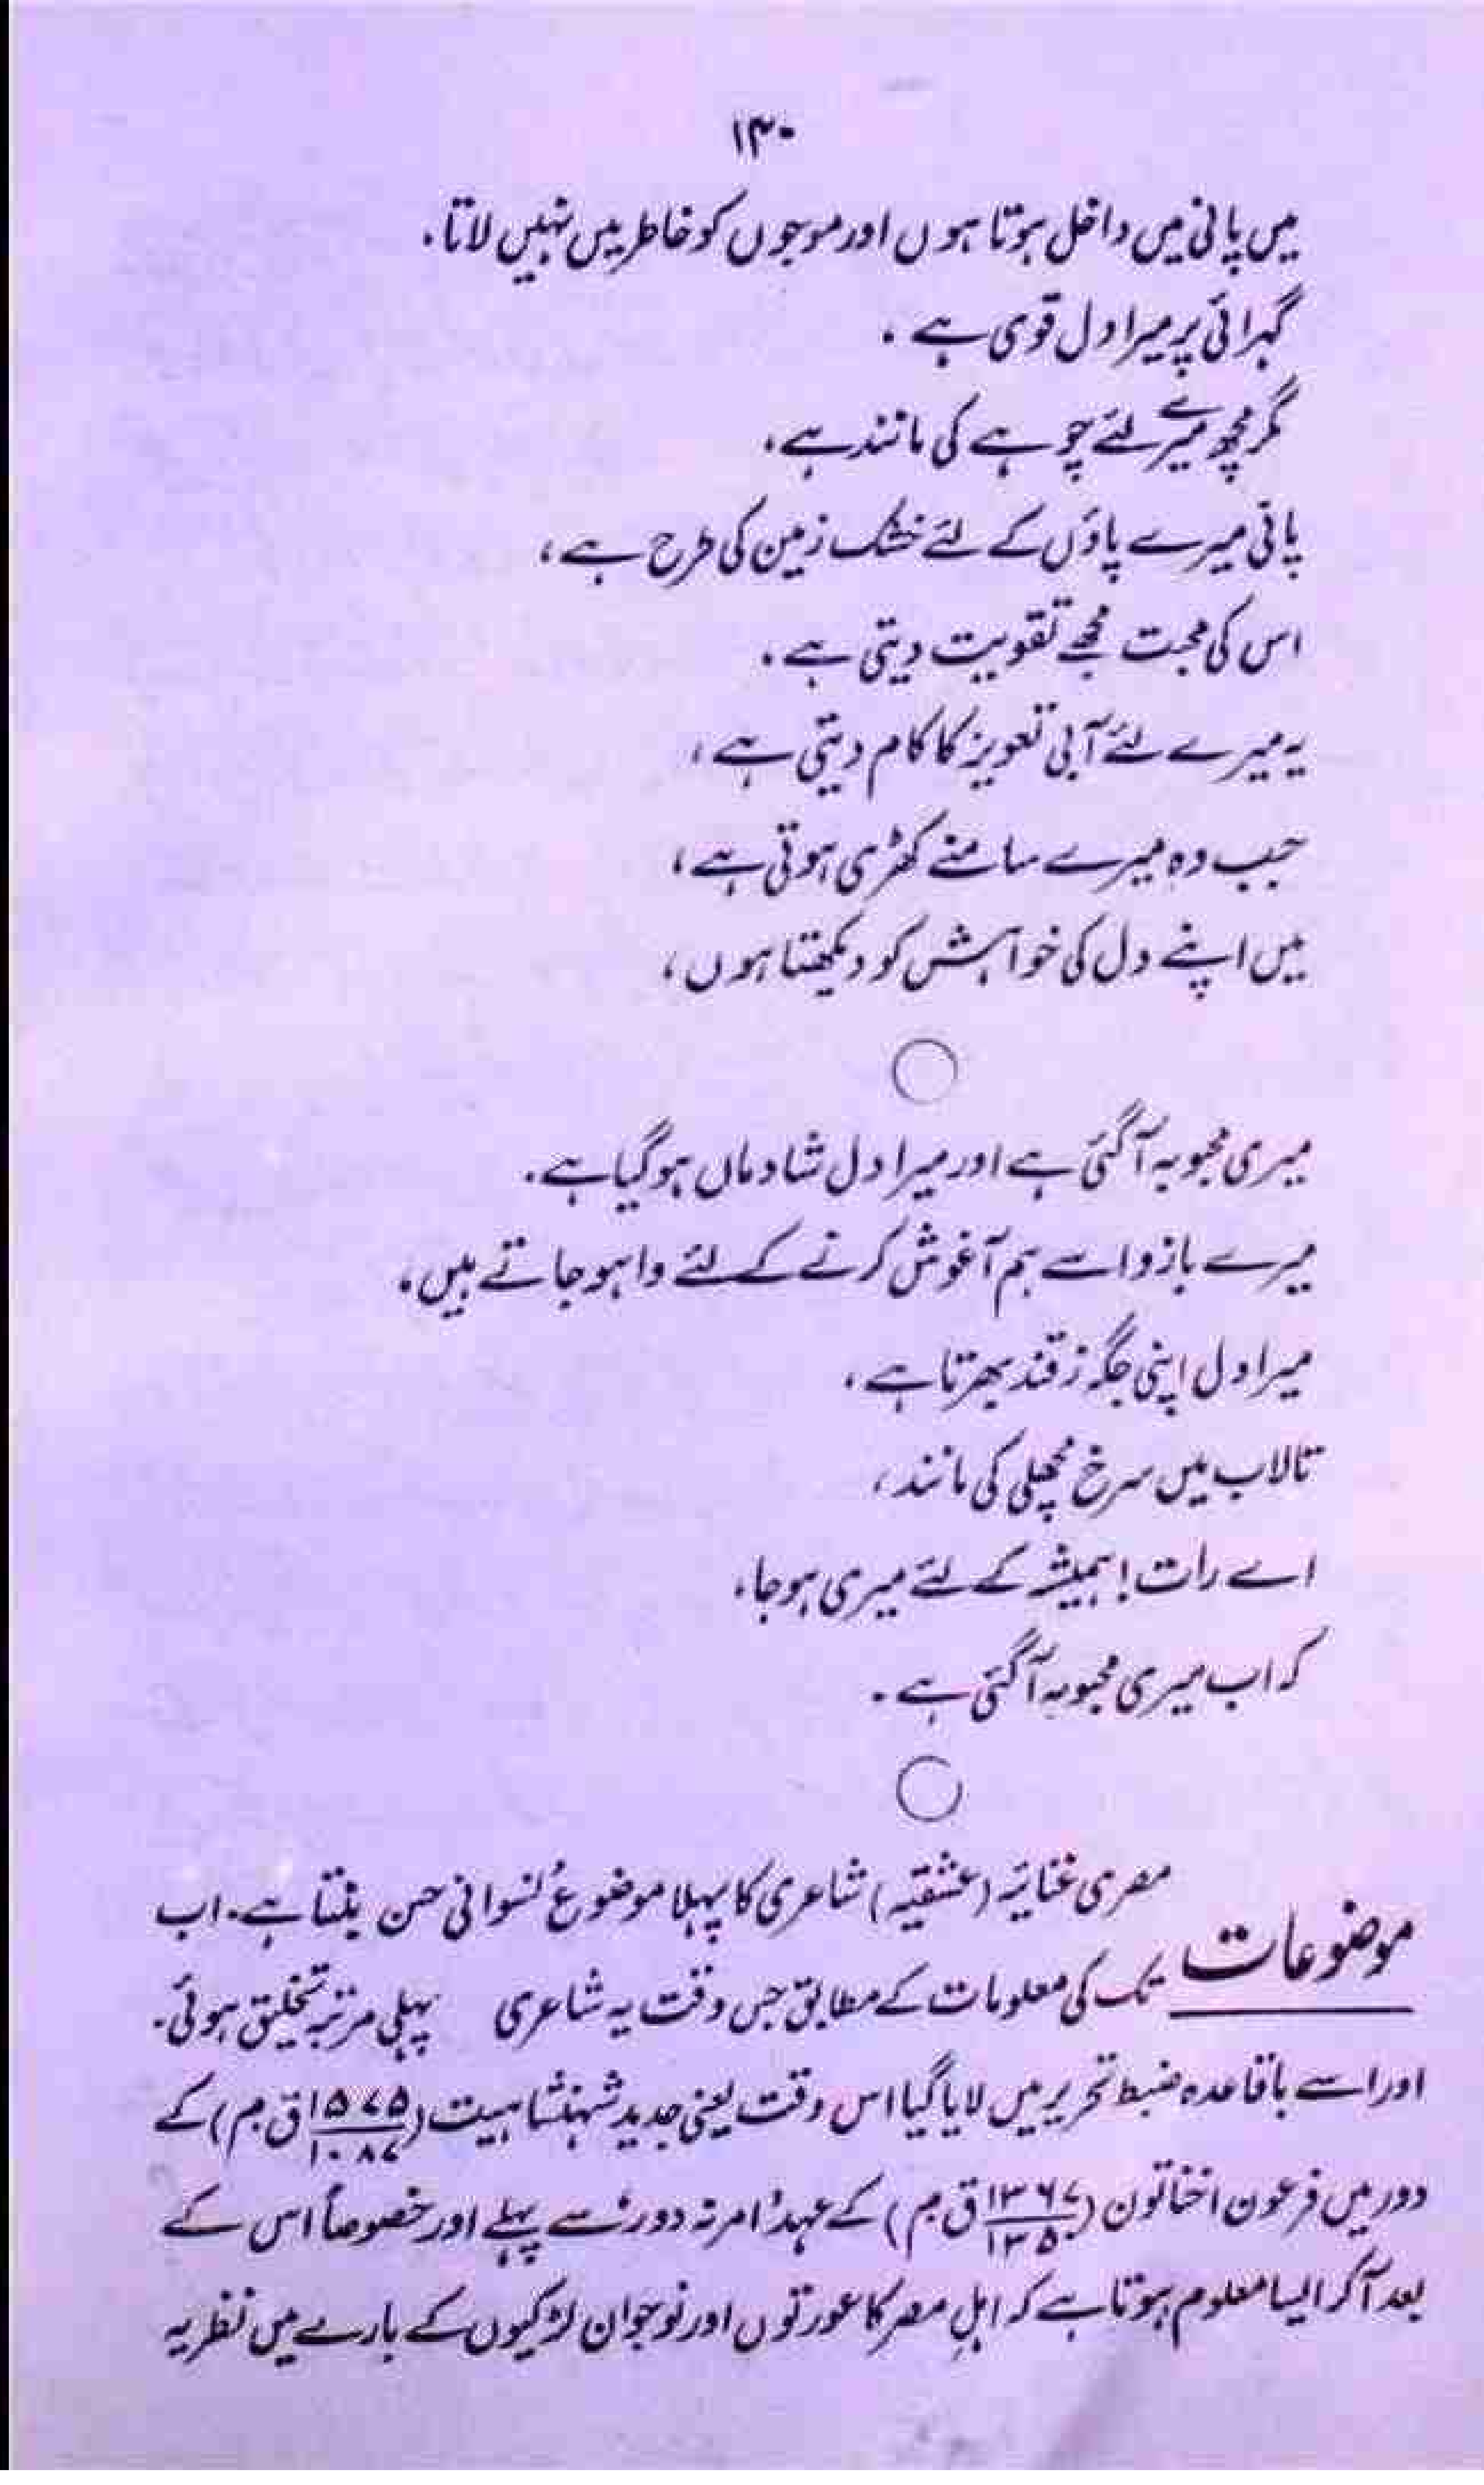 ۱۳۰
میں پانی میں داخل ہوتا ہوں اور موجوں کو خاطر میں نہیں لاتا۔
گہرائی پر میرا دل قوی ہے ۔
مگر مچھ میرے لئے چوہے کی مانند ہے،
پانی میرے پاؤں کے لئے خشک زمین کی طرح ہے،
اس کی محبت مجھے تقویت دیتی ہے ۔
یہ میرے لئے آبی تعویز کا کام دیتی ہے،
جب وہ میرے سامنے کھڑی ہوتی ہے،
میں اپنے دل کی خواہش کو دیکھتا ہوں،
میری محبوبہ آگئی ہے اور میرا دل شادماں ہو گیا ہے۔
میرے بازو اسے ہم آغوش کرنے کے لئے وا ہو جاتے ہیں۔
میرا دل اپنی جگہ زقند بھرتا ہے،
تالاب میں سرخ مچھلی کی مانند،
اے رات! ہمیشہ کے لئے میری ہو جا،
کہ اب میری محبوبہ آگئی ہے ۔
موضوعات
مصری غنائیہ (عشقیہ) شاعری کا پہلا موضوع نسوانی حسن بنتا ہے۔ اب
تک کی معلومات کے مطابق جس وقت یہ شاعری پہلی مرتبہ تخلیق ہوئی۔
اور اسے باقاعدہ ضبط تحریر میں لایا گیا اس وقت یعنی جدید شہنشاہیت (۱۵۷۵/۱۰۸۷ ق م) کے
دور میں فرعون اخناتون (۱۳۶۷/۱۳۵۰ ق م) کے عہد امرنہ دور سے پہلے اور خصوصاً اس کے
بعد آکر ایسا معلوم ہوتا ہے کہ اہلِ مصر کا عورتوں اور نوجوان لڑکیوں کے بارے میں نظریہ